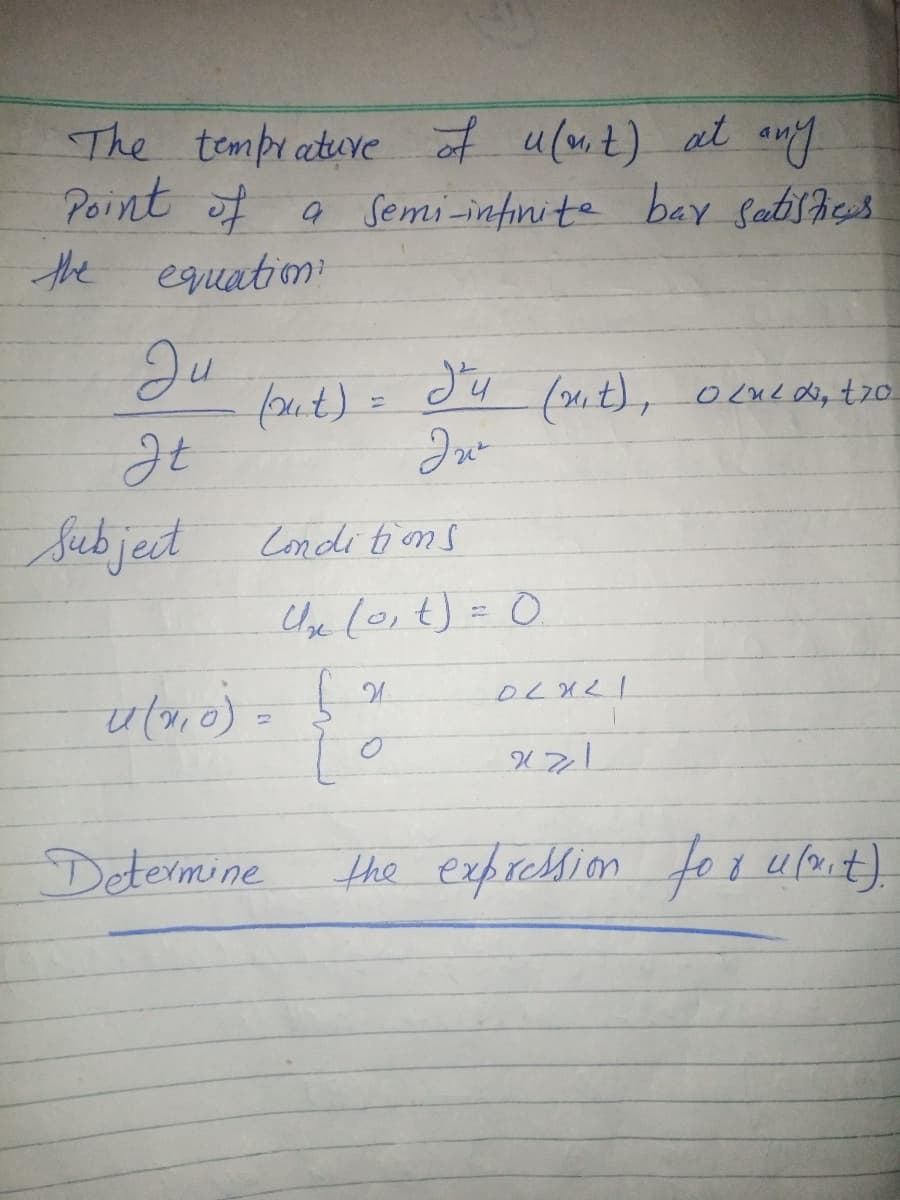 The temprature of u(x,t) at any
Point of a semi-infinite bar satisfies
the equation:
∂u/∂t (x,t) = ∂²u/∂x² (x,t), 0<x<∞, t>0
Subject Conditions
Ux (0,t) = 0.
u(x,0) = { x 0<x<1
0 x≥1
Determine the expression for u(x,t).